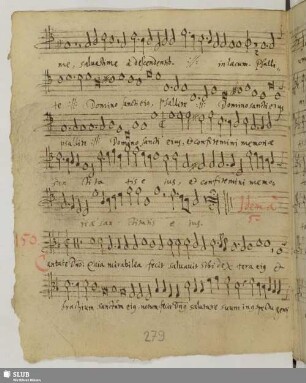 me, salvasti me a descendentib. :||: in lacum. Psalli
te :||: Domino sancti eius, psallite :||: Domino sancti eius
psallite :||: Domino sancti eius, et confitemini memoriæ
sanctita tis e ius, et confitemini memo
riæ sanctitatis e ius.
Idem à
5.
150.
Cantate Dno: Quia mirabilia fecit salvavit sibi dextera eius et
brachium sanctum eius, notum fecit Dns salutare suum in
279
SLUB